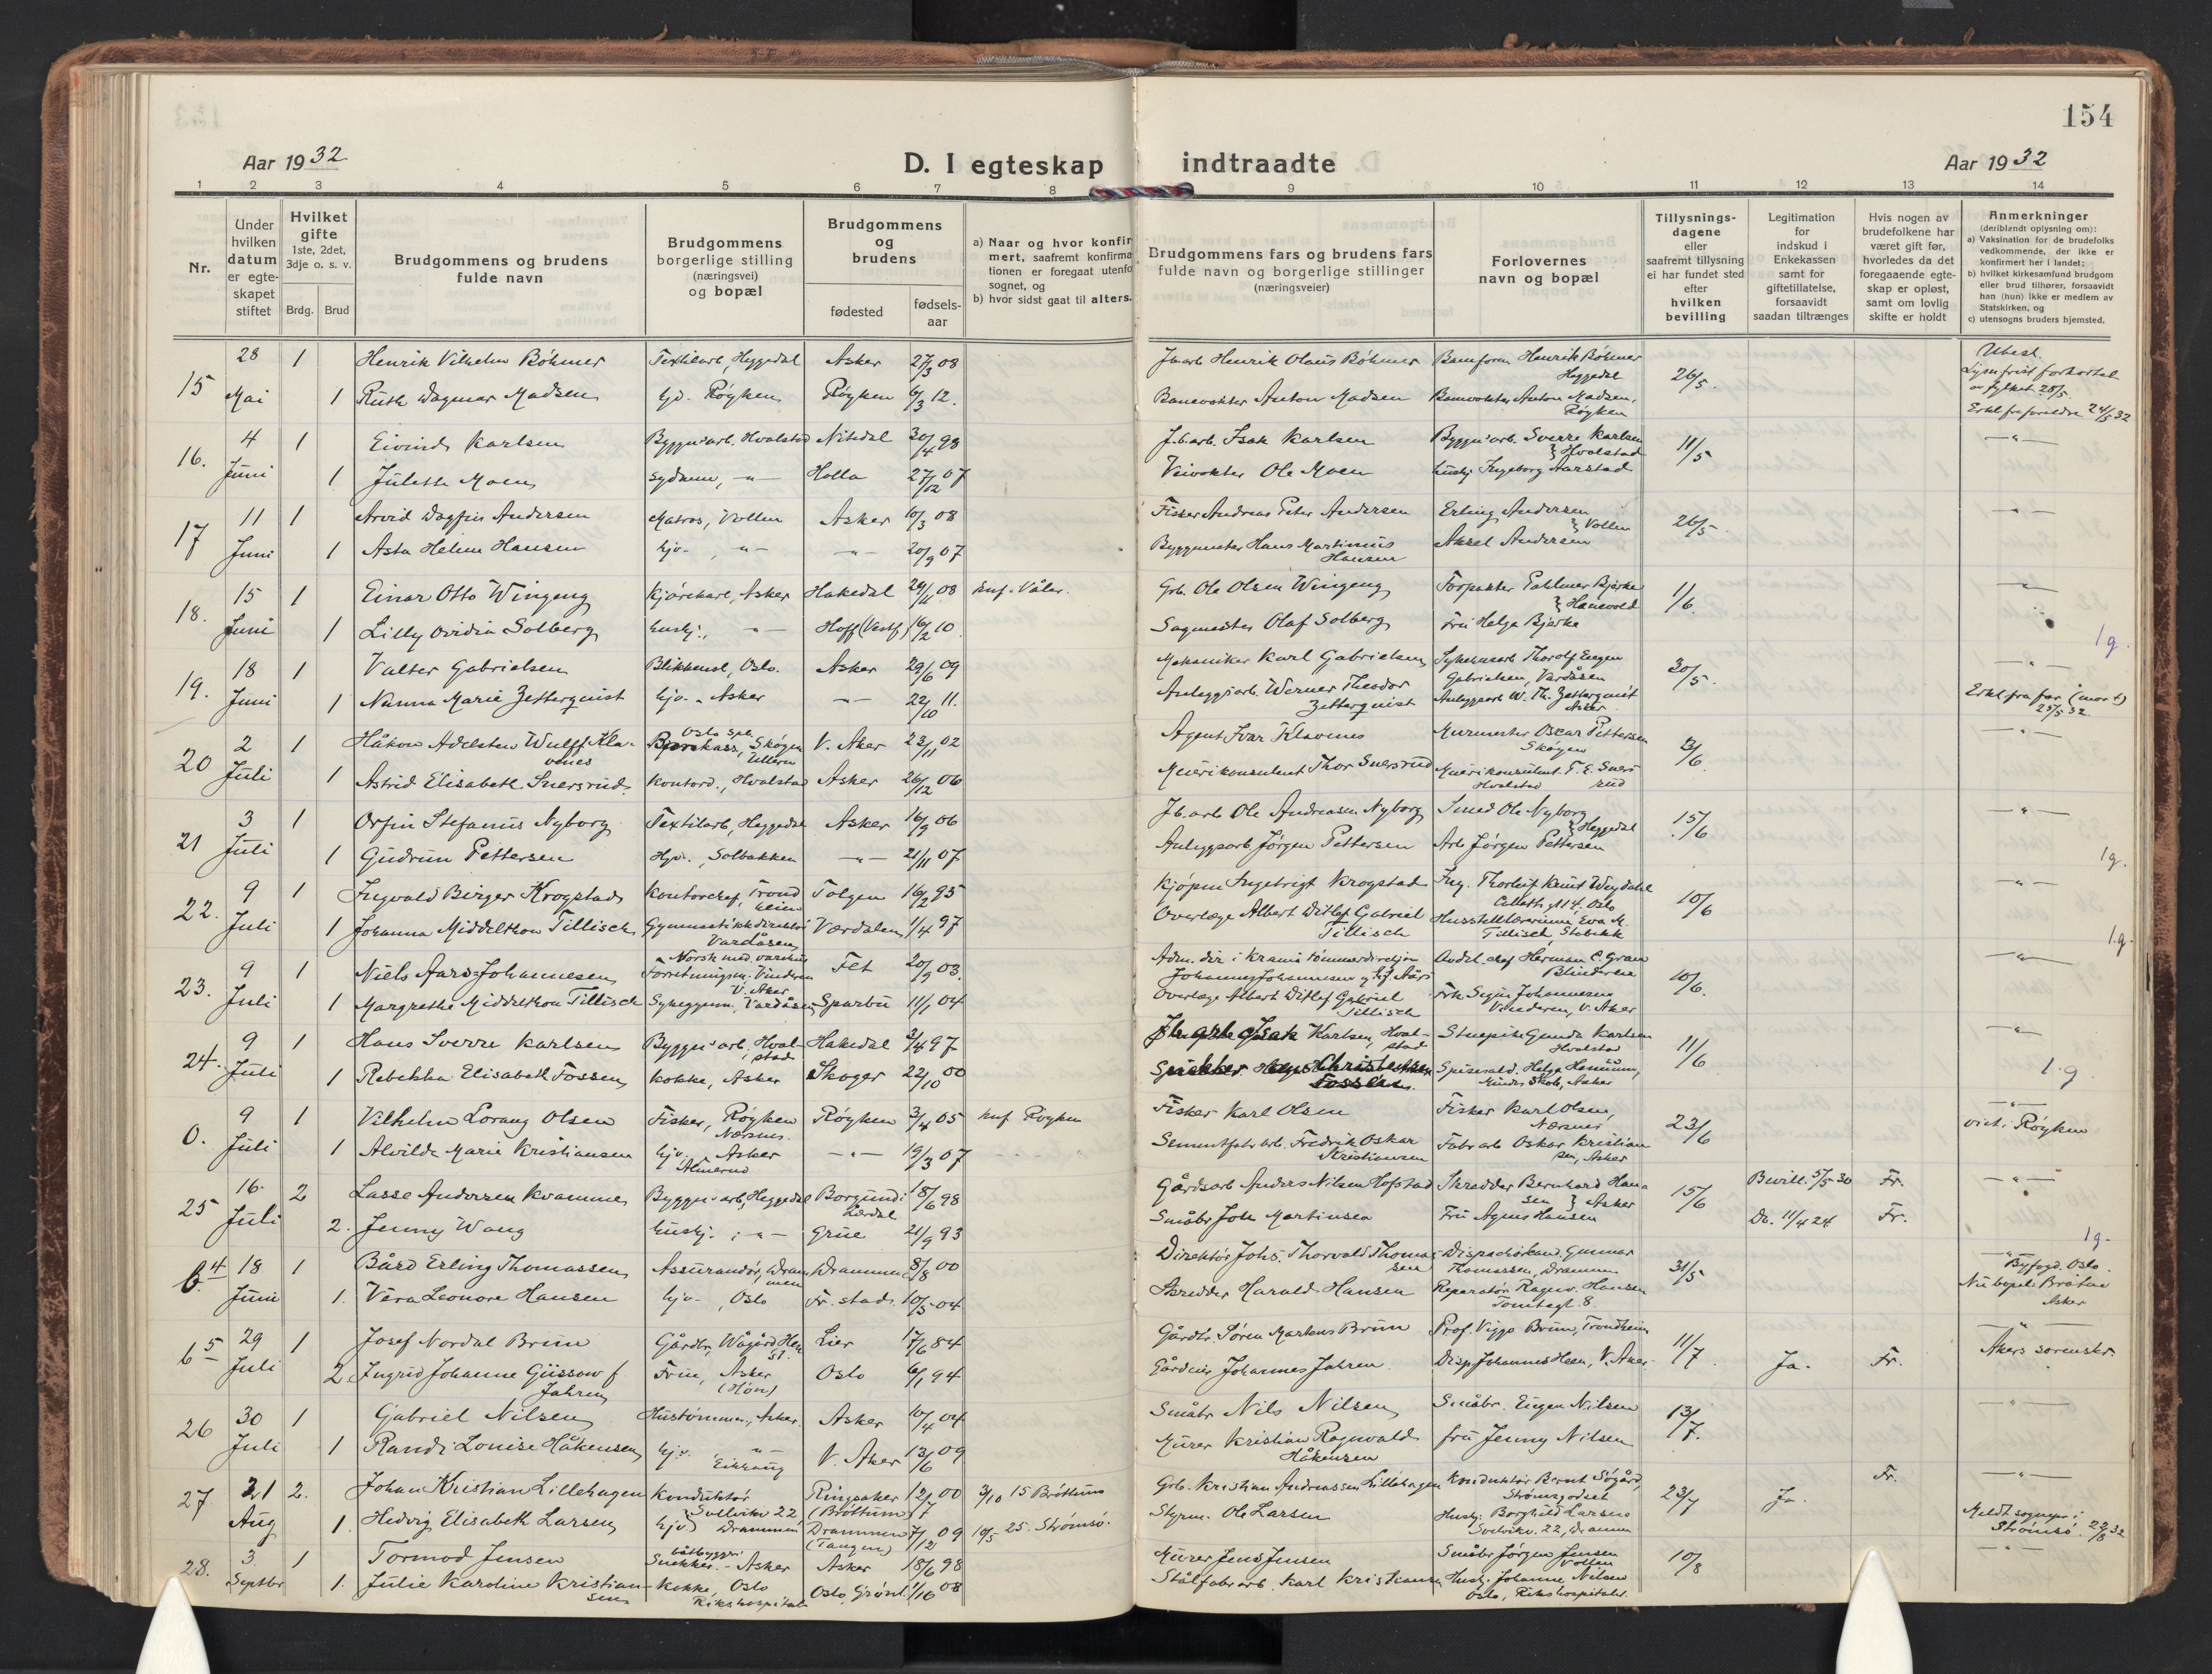 154
Aar 1932
D. I egteskap indtraadte
Aar 1932
1 2 3 4 5 6 7 8 9 10 11 12 13 14
Nr.
Under hvilken datum er egteskapet stiftet
Hvilket gifte 1ste, 2det, 3dje o. s. v.
Brdg. Brud
Brudgommens og brudens fulde navn
Brudgommens borgerlige stilling (næringsvei) og bopæl
Brudgommens og brudens
fødested
fødsels-aar
a) Naar og hvor konfirmert, saafremt konfirmationen er foregaat utenfor sognet, og
b) hvor sidst gaat til alters.
Brudgommens fars og brudens fars fulde navn og borgerlige stillinger (næringsveier)
Forlovernes navn og bopæl
Tillysningsdagene eller saafremt tillysning ei har fundet sted efter hvilken bevilling
Legitimation for indskud i Enkekassen samt for giftetillatelse, forsaavidt saadan tiltrænges
Hvis nogen av brudefolkene har været gift før, hvorledes da det foregaaende egteskap er opløst, samt om lovlig skifte er holdt
Anmerkninger (deriblandt oplysning om):
a) Vaksination for de brudefolks vedkommende, der ikke er konfirmert her i landet;
b) hvilket kirkesamfund brudgom eller brud tilhører, forsaavidt han (hun) ikke er medlem av Statskirken, og
c) utensogns bruders hjemsted.
15 28 Mai 1 Henrik Vilhelm Böhmer Textilarb, Heggedal Asker 27/3 08 Jb.arb Henrik Olaus Böhmer Henrik Böhmer Heggedal 26/5.
1 Ruth Dagmar Madsen hjv. Røyken Røyken 6/3 12. Banevokter Anton Madsen Banevokter Anton Madsen, Røyken
16. 4 Juni 1 Eivind Karlsen Byggn.arb. Hvalstad Nitedal 30/4 98 J.b.arb. Isak Karlsen Byggn.arb. Sverre Karlsen } Hvalstad 11/5
1 Julette Moen sydame, -"- Holla 27/12 07 Veivokter Ole Moen husbj. Ingeborg Aarstad
17 11 Juni 1 Arvid Dagfin Andersen Matros, Vollen Asker 10/3 08 Fisker Andreas Peter Andersen Erling Andersen } Vollen 26/5
1 Asta Helene Hansen hjv. -"- -"- 20/9 07 Byggmester Hans Martinius Hansen Aksel Andersen
18. 15 Juni 1 Einar Otto Wingeng Kjørekarl, Asker Hakedal 29/11 08 knf. Våler. Grb. Ole Olsen Wingeng Forpakter Bjerke } Hanevold 1/6.
1 Lilly Ovidia Solberg hushj., -"- Hoff (Vestf) 16/2 10. Sagmester Olaf Solberg Fru Helga Bjerke
1 g.
19. 18 Juni 1 Valter Gabrielsen Blikkensl, Oslo. Asker 29/6 09 Mekaniker Karl Gabrielsen Thorolf Eugen Gabrielsen, Vardåsen 30/5.
1 Nanna Marie Zetterquist hjv. - Asker -"- 22/10 11. Anleggsarb. Werner Theodor Zetterquist Anleggsarb W. Th. Zetterquist Asker Erkl fra far (mor †) 25/5 32.
20 2 Juli 1 Håkon Adelsten Wulff Klavenes Oslo Spb. Skøyen, Ullern V. Aker 23/11 02 Agent Ivar Klavenes Murmester Oscar Pettersen Skøyen
1 Astrid Elisabeth Snersrud. Kontord., Hvalstad Asker 26/12 06 Meierikonsulent Thor Snersrud Meierikonsulent T. E. Snersrud Hvalstad
21 3 Juli 1 Orfin Stefanus Nyborg Textilarb, Heggedal Asker 16/9 06 J.b.arb Ole Andreasen Nyborg Smed Ole Nyborg } Heggedal 15/6
1 Gudrun Pettersen Hjv., Solbakken -"- 21/11 07 Anleggsarb Jørgen Pettersen Arb Jørgen Pettersen
1g.
22. 9 Juli 1 Ingvald Birger Krogstad Kontorchef, Trondheim Tolgen 16/2 95 Kjøpm Ingebrigt Krogstad Ing. Thorleif Knut Weydahl Collettsgt 14. Oslo 10/6
1 Johanna Middelthon Tillisch Gymnastikkdirektør Vardåsen Værdalen 11/4 97 Overlæge Albert Ditlef Gabriel Tillisch Husstellærerinne Eva M. Tillisch, Stabekk
1.g.
23. 9 Juli 1 Niels Aars Johannesen Norsk med. varehus Forretningsm. Vinderen V. Aker Fet 20/9 03. Adm. dir i Krania tømmerdirektion Johannes Johannesen Avdel. chef Herman C. Gran Blinderen 10/6.
1 Margrethe Middelthon Tillisch Sykegymn. Vardåsen Sparbu 11/1 04 Overlæge Albert Ditlef Gabriel Tillisch Frk Signe Johannesen Vinderen, V. Aker
24. 9 Juli 1 Hans Sverre Karlsen Byggn.arb. Hvalstad Hakedal 3/4 97 Jb arb Isak Karlsen, Hvalstad Gunda Karlsen Hvalstad 11/6
1 Rebekka Elisabeth Fossen kokke, Asker Skoger 22/10 00 Snekker Christensen Fossen. Helga Hennum, Asker
1.g
0. 9 Juli 1 Vilhelm Lorang Olsen Fisker, Røyken Nærsnes. Røyken 3/4 05 knf Røyken Fisker Karl Olsen Fisker Karl Olsen, Nærsnes 23/6 viet i Røyken
1 Alvilde Marie Kristiansen hjv. Asker -"- 19/3 07 Sementfabr.arb. Fredrik Oskar Kristiansen Fabr.arb Oskar Kristiansen, Asker
25 16. Juli 2 Lasse Andersen Kvamme Byggn.arb, Heggedal Borgund i Lærdal 18/6 98 Gårdsarb Anders Nilsen Hofstad Skredder Bernhard Hansen } Asker 15/6 Bevill. 5/5 30 Fr.
2. Jenny Wang hushj. -"- Grue 21/9 93 Småbr Joh Martinsen Fru Agnes Hansen Do. 11/4 24 Fr.
1g.
b. 4 18 Juni 1 Bård Erling Thomassen Assurandør, Drammen Drammen 8/8 00 Direktør Johs. Thorvald Thomassen Gunnar Thomassen, Drammen 31/5 Byfogd. Oslo.
1. Vera Leonore Hansen hjv. , Oslo Fr.stad. 10/5 04 Skredder Harald Hansen Reparatør Ragnv. Hansen Tomtegt. 8. Nu bopel: Bråten Asker
b 5 29 Juli 1 Josef Nordal Brun Gårdbr, Lier 17/6 84 Gårdbr. Søren Martens Brun Prof. Viggo Brun, Trondheim 11/7 Akers sorenskr.
2. Ingrid Johanne Güssow f Jahren Frue, Asker (Høn) Oslo 6/1 94 Gårdeier Johannes Jahren Disp. Johannes Heen, V. Aker. Ja. Fr.
26 30 Juli 1 Gabriel Nilsen Hustømmerm, Asker. Asker 10/4 04 Småbr Nils Nilsen Småbr. Eugen Nilsen 13/7.
1 Randi Louise Håkensen hjv. -"- V. Aker 13/6 09 Murer Kristian Ragnvald Håkensen fru Jenny Nilsen
27. 21 Aug 2. Johan Kristian Lillehagen Konduktør Svelvikv 22, Drammen Ringsaker (Brøttum) 12/7 00 3/10 15 Brøttum Grb. Kristian Andreassen Lillehagen Konduktør Bernt Søgård, Strømsgodset 23/7 Ja. Fr.
1. Hedvig Elisabeth Larsen hjv. Drammen (Tangen) 7/12 09 10/5 25. Strømsø. Styrm. Ole Larsen Hushj. Borghild Larsen Svelvikv. 22, Drammen Meldt sognepr i Strømsø. 22/8 32
28. 3. Septbr 1 Tormod Jensen båtbygger Snekker - Asker Asker 18/6 98 Murer Jens Jensen Småbr Jørgen Jensen Vollen 10/8
1. Julie Karoline Kristiansen Kokke, Oslo Rikshospital Oslo, Grønl. 1/10 08 Stålfabr.arb. Karl Kristiansen Hushj. Johanne Nilsen Oslo, Rikshospitalet.